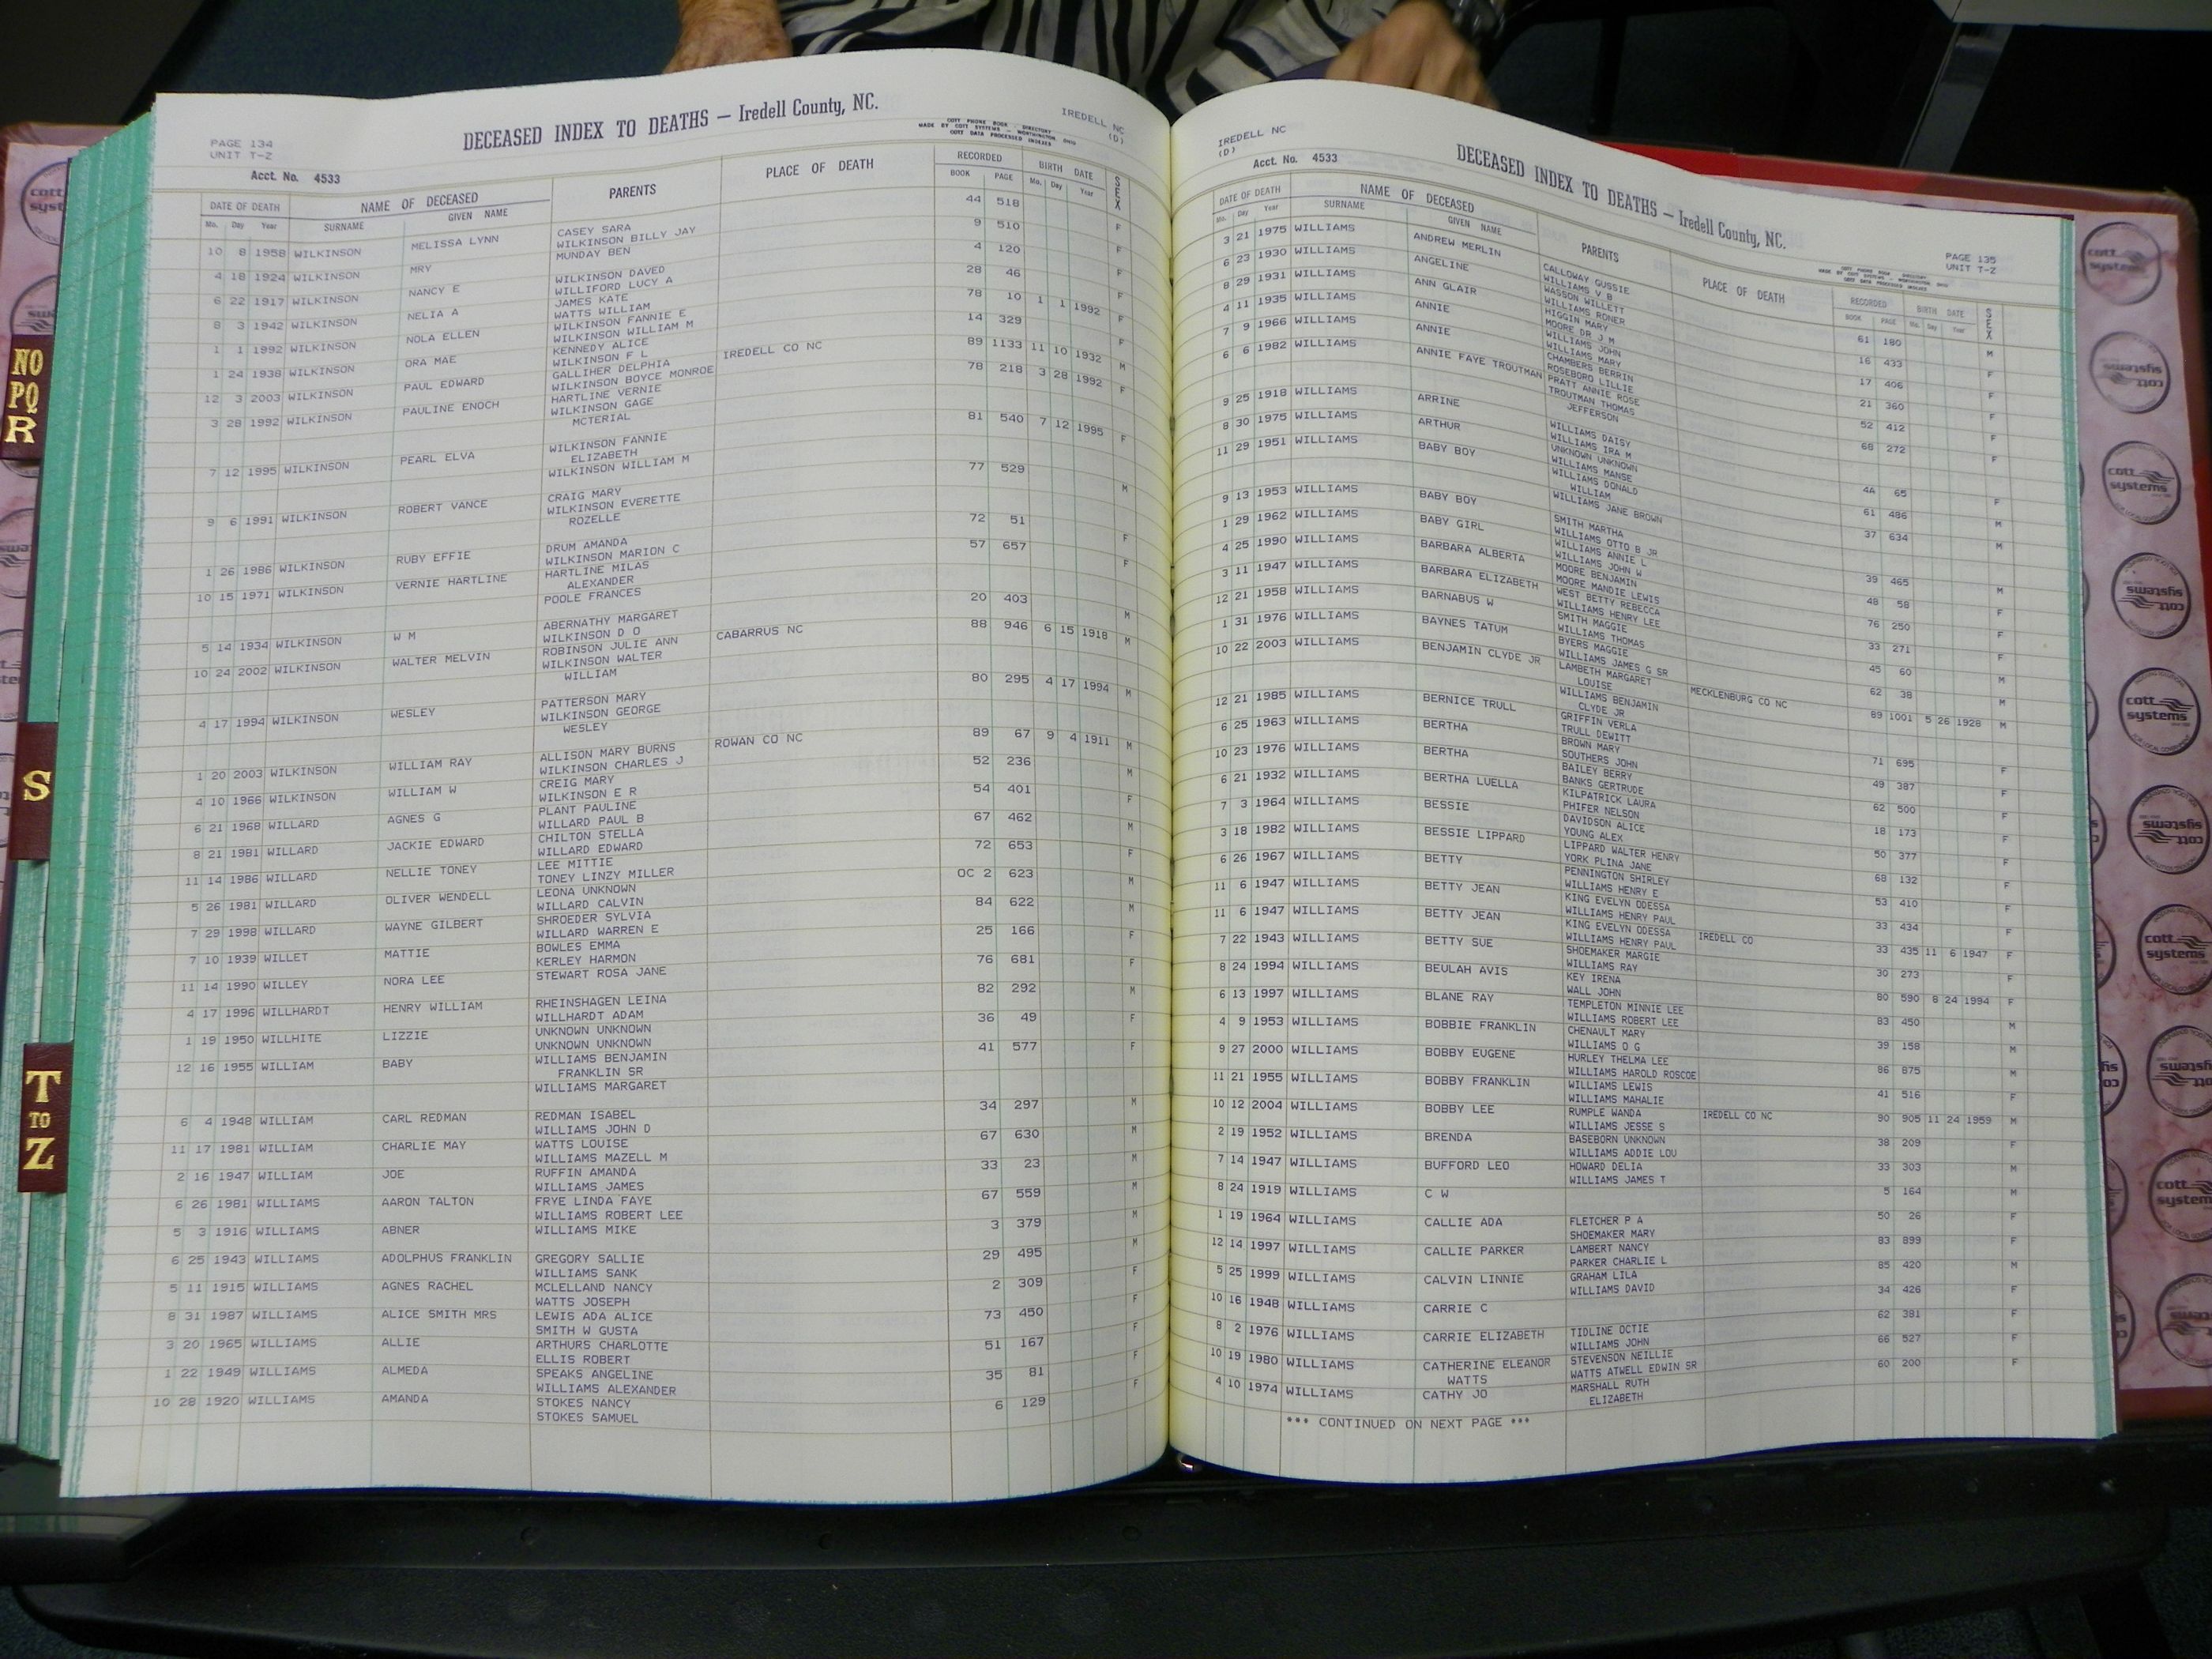 IREDELL NC
(D)
PAGE 134
UNIT T-Z
DECEASED INDEX TO DEATHS — Iredell County, NC.
COTT PHONE BOOK - DIRECTORY
MADE BY COTT SYSTEMS - WORTHINGTON, OHIO
COTT DATA PROCESSED INDEXES
Acct. No. 4533
DATE OF DEATH NAME OF DECEASED PARENTS PLACE OF DEATH RECORDED BIRTH DATE SEX
Mo. Day Year SURNAME GIVEN NAME BOOK PAGE Mo. Day Year
10 8 1958 WILKINSON MELISSA LYNN CASEY SARA 44 518 F
WILKINSON BILLY JAY
4 18 1924 WILKINSON MRY MUNDAY BEN 9 510
6 22 1917 WILKINSON NANCY E WILKINSON DAVED 4 120 F
WILLIFORD LUCY A
8 3 1942 WILKINSON NELIA A JAMES KATE 28 46 F
WATTS WILLIAM
1 1 1992 WILKINSON NOLA ELLEN WILKINSON FANNIE E 78 10 1 1 1992 F
WILKINSON WILLIAM M
1 24 1938 WILKINSON ORA MAE KENNEDY ALICE 14 329 F
WILKINSON F L
12 3 2003 WILKINSON PAUL EDWARD GALLIHER DELPHIA IREDELL CO NC 89 1133 11 10 1932 M
WILKINSON BOYCE MONROE
3 28 1992 WILKINSON PAULINE ENOCH HARTLINE VERNIE 78 218 3 28 1992 F
WILKINSON GAGE
MCTERIAL
7 12 1995 WILKINSON PEARL ELVA WILKINSON FANNIE 81 540 7 12 1995 F
ELIZABETH
WILKINSON WILLIAM M
9 6 1991 WILKINSON ROBERT VANCE CRAIG MARY 77 529 M
WILKINSON EVERETTE
ROZELLE
1 26 1986 WILKINSON RUBY EFFIE DRUM AMANDA 72 51 F
WILKINSON MARION C
10 15 1971 WILKINSON VERNIE HARTLINE HARTLINE MILAS 57 657 F
ALEXANDER
POOLE FRANCES
5 14 1934 WILKINSON W M ABERNATHY MARGARET 20 403 M
WILKINSON D O
10 24 2002 WILKINSON WALTER MELVIN ROBINSON JULIE ANN CABARRUS NC 88 946 6 15 1918 M
WILKINSON WALTER
WILLIAM
4 17 1994 WILKINSON WESLEY PATTERSON MARY 80 295 4 17 1994 M
WILKINSON GEORGE
WESLEY
1 20 2003 WILKINSON WILLIAM RAY ALLISON MARY BURNS ROWAN CO NC 89 67 9 4 1911 M
WILKINSON CHARLES J
4 10 1966 WILKINSON WILLIAM W CREIG MARY 52 236 M
WILKINSON E R
6 21 1968 WILLARD AGNES G PLANT PAULINE 54 401 F
WILLARD PAUL B
8 21 1981 WILLARD JACKIE EDWARD CHILTON STELLA 67 462 M
WILLARD EDWARD
11 14 1986 WILLARD NELLIE TONEY LEE MITTIE 72 653 F
TONEY LINZY MILLER
5 26 1981 WILLARD OLIVER WENDELL LEONA UNKNOWN OC 2 623 M
WILLARD CALVIN
7 29 1998 WILLARD WAYNE GILBERT SHROEDER SYLVIA 84 622 M
WILLARD WARREN E
7 10 1939 WILLET MATTIE BOWLES EMMA 25 166 F
KERLEY HARMON
11 14 1990 WILLEY NORA LEE STEWART ROSA JANE 76 681 F
4 17 1996 WILLHARDT HENRY WILLIAM RHEINSHAGEN LEINA 82 292 M
WILLHARDT ADAM
1 19 1950 WILLHITE LIZZIE UNKNOWN UNKNOWN 36 49 F
UNKNOWN UNKNOWN
12 16 1955 WILLIAM BABY WILLIAMS BENJAMIN 41 577 F
FRANKLIN SR
WILLIAMS MARGARET
6 4 1948 WILLIAM CARL REDMAN REDMAN ISABEL 34 297 M
WILLIAMS JOHN D
11 17 1981 WILLIAM CHARLIE MAY WATTS LOUISE 67 630 M
WILLIAMS MAZELL M
2 16 1947 WILLIAM JOE RUFFIN AMANDA 33 23 M
WILLIAMS JAMES
6 26 1981 WILLIAMS AARON TALTON FRYE LINDA FAYE 67 559 M
WILLIAMS ROBERT LEE
5 3 1916 WILLIAMS ABNER WILLIAMS MIKE 3 379 M
6 25 1943 WILLIAMS ADOLPHUS FRANKLIN GREGORY SALLIE 29 495 M
WILLIAMS SANK
5 11 1915 WILLIAMS AGNES RACHEL MCLELLAND NANCY 2 309 F
WATTS JOSEPH
8 31 1987 WILLIAMS ALICE SMITH MRS LEWIS ADA ALICE 73 450 F
SMITH W GUSTA
3 20 1965 WILLIAMS ALLIE ARTHURS CHARLOTTE 51 167 F
ELLIS ROBERT
1 22 1949 WILLIAMS ALMEDA SPEAKS ANGELINE 35 81 F
WILLIAMS ALEXANDER
10 28 1920 WILLIAMS AMANDA STOKES NANCY 6 129 F
STOKES SAMUEL
IREDELL NC
(D)
Acct. No. 4533
DECEASED INDEX TO DEATHS — Iredell County, NC.
PAGE 135
UNIT T-Z
COTT PHONE BOOK - DIRECTORY
MADE BY COTT SYSTEMS - WORTHINGTON, OHIO
COTT DATA PROCESSED INDEXES
DATE OF DEATH NAME OF DECEASED PARENTS PLACE OF DEATH RECORDED BIRTH DATE SEX
Mo. Day Year SURNAME GIVEN NAME BOOK PAGE Mo. Day Year
3 21 1975 WILLIAMS ANDREW MERLIN CALLOWAY GUSSIE 61 180 M
WILLIAMS V B
6 23 1930 WILLIAMS ANGELINE WASSON WILLETT 16 433 F
WILLIAMS RONER
8 29 1931 WILLIAMS ANN GLAIR HIGGIN MARY 17 406 F
MOORE DR J M
4 11 1935 WILLIAMS ANNIE WILLIAMS JOHN 21 360 F
WILLIAMS MARY
7 9 1966 WILLIAMS ANNIE CHAMBERS BERRIN 52 412 F
ROSEBORO LILLIE
6 6 1982 WILLIAMS ANNIE FAYE TROUTMAN PRATT ANNIE ROSE 68 272 F
TROUTMAN THOMAS
JEFFERSON
9 25 1918 WILLIAMS ARRINE WILLIAMS DAISY 4A 65 F
WILLIAMS IRA M
8 30 1975 WILLIAMS ARTHUR UNKNOWN UNKNOWN 61 486 M
WILLIAMS MANSE
11 29 1951 WILLIAMS BABY BOY WILLIAMS DONALD 37 634 M
WILLIAM
WILLIAMS JANE BROWN
9 13 1953 WILLIAMS BABY BOY SMITH MARTHA 39 465 M
WILLIAMS OTTO B JR
1 29 1962 WILLIAMS BABY GIRL WILLIAMS ANNIE L 48 58 F
WILLIAMS JOHN W
4 25 1990 WILLIAMS BARBARA ALBERTA MOORE BENJAMIN 76 250 F
MOORE MANDIE LEWIS
3 11 1947 WILLIAMS BARBARA ELIZABETH WEST BETTY REBECCA 33 271 F
WILLIAMS HENRY LEE
12 21 1958 WILLIAMS BARNABUS W SMITH MAGGIE 45 60 M
WILLIAMS THOMAS
1 31 1976 WILLIAMS BAYNES TATUM BYERS MAGGIE 62 38 M
WILLIAMS JAMES G SR
10 22 2003 WILLIAMS BENJAMIN CLYDE JR LAMBETH MARGARET MECKLENBURG CO NC 89 1001 5 26 1928 M
LOUISE
WILLIAMS BENJAMIN
CLYDE JR
12 21 1985 WILLIAMS BERNICE TRULL GRIFFIN VERLA 71 695 F
TRULL DEWITT
6 25 1963 WILLIAMS BERTHA BROWN MARY 49 387 F
SOUTHERS JOHN
10 23 1976 WILLIAMS BERTHA BAILEY BERRY 62 500 F
BANKS GERTRUDE
6 21 1932 WILLIAMS BERTHA LUELLA KILPATRICK LAURA 18 173 F
PHIFER NELSON
7 3 1964 WILLIAMS BESSIE DAVIDSON ALICE 50 377 F
YOUNG ALEX
3 18 1982 WILLIAMS BESSIE LIPPARD LIPPARD WALTER HENRY 68 132 F
YORK PLINA JANE
6 26 1967 WILLIAMS BETTY PENNINGTON SHIRLEY 53 410 F
WILLIAMS HENRY E
11 6 1947 WILLIAMS BETTY JEAN KING EVELYN ODESSA 33 434 F
WILLIAMS HENRY PAUL
11 6 1947 WILLIAMS BETTY JEAN KING EVELYN ODESSA IREDELL CO 33 435 11 6 1947 F
WILLIAMS HENRY PAUL
7 22 1943 WILLIAMS BETTY SUE SHOEMAKER MARGIE 30 273 F
WILLIAMS RAY
8 24 1994 WILLIAMS BEULAH AVIS KEY IRENA 80 590 8 24 1994 F
WALL JOHN
6 13 1997 WILLIAMS BLANE RAY TEMPLETON MINNIE LEE 83 450 M
WILLIAMS ROBERT LEE
4 9 1953 WILLIAMS BOBBIE FRANKLIN CHENAULT MARY 39 158 M
WILLIAMS O G
9 27 2000 WILLIAMS BOBBY EUGENE HURLEY THELMA LEE 86 875 M
WILLIAMS HAROLD ROSCOE
11 21 1955 WILLIAMS BOBBY FRANKLIN WILLIAMS LEWIS 41 516 F
WILLIAMS MAHALIE
10 12 2004 WILLIAMS BOBBY LEE RUMPLE WANDA IREDELL CO NC 90 905 11 24 1959 M
WILLIAMS JESSE S
2 19 1952 WILLIAMS BRENDA BASEBORN UNKNOWN 38 209 F
WILLIAMS ADDIE LOU
7 14 1947 WILLIAMS BUFFORD LEO HOWARD DELIA 33 303 M
WILLIAMS JAMES T
8 24 1919 WILLIAMS C W 5 164 M
1 19 1964 WILLIAMS CALLIE ADA FLETCHER P A 50 26 F
SHOEMAKER MARY
12 14 1997 WILLIAMS CALLIE PARKER LAMBERT NANCY 83 899 F
PARKER CHARLIE L
5 25 1999 WILLIAMS CALVIN LINNIE GRAHAM LILA 85 420 M
WILLIAMS DAVID
10 16 1948 WILLIAMS CARRIE C 34 426 F
8 2 1976 WILLIAMS CARRIE ELIZABETH TIDLINE OCTIE 62 381 F
WILLIAMS JOHN
10 19 1980 WILLIAMS CATHERINE ELEANOR STEVENSON NEILLIE 66 527 F
WATTS WATTS ATWELL EDWIN SR
4 10 1974 WILLIAMS CATHY JO MARSHALL RUTH 60 200 F
ELIZABETH
*** CONTINUED ON NEXT PAGE ***
NO
PQ
R
S
T
TO
Z
cott
systems